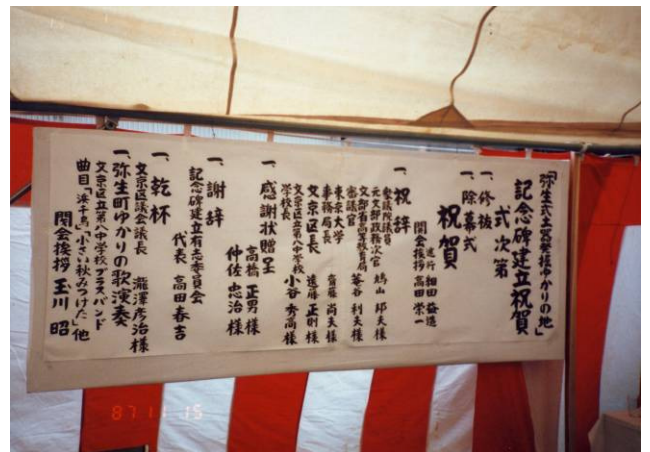 「弥生式土器発掘ゆかりの地」
記念碑建立祝賀
式次第
一、修祓
一、除幕式
祝賀
進行 相田 益造
開会挨拶 高田 栄一
一、祝辞
衆議院議員
元文部政務次官 鳩山 邦夫様
文部省高等教育局
審議官 菴谷 利夫様
東京大学
事務局長 齋藤 尚夫様
文京区長 遠藤 正則様
文京区立第八中学校
学校長 小谷 秀高様
一、感謝状贈呈
高橋 正男様
仲佐 忠治様
一、謝辞
記念碑建立有志委員会
代表 高田春吉
一、乾杯
文京区議会議長 瀧澤彦治様
一、弥生町ゆかりの歌演奏
文京区立第八中学校ブラスバンド
曲目「浜千鳥」「小さい秋みつけた」他
閉会挨拶 玉川 昭
87 11 15